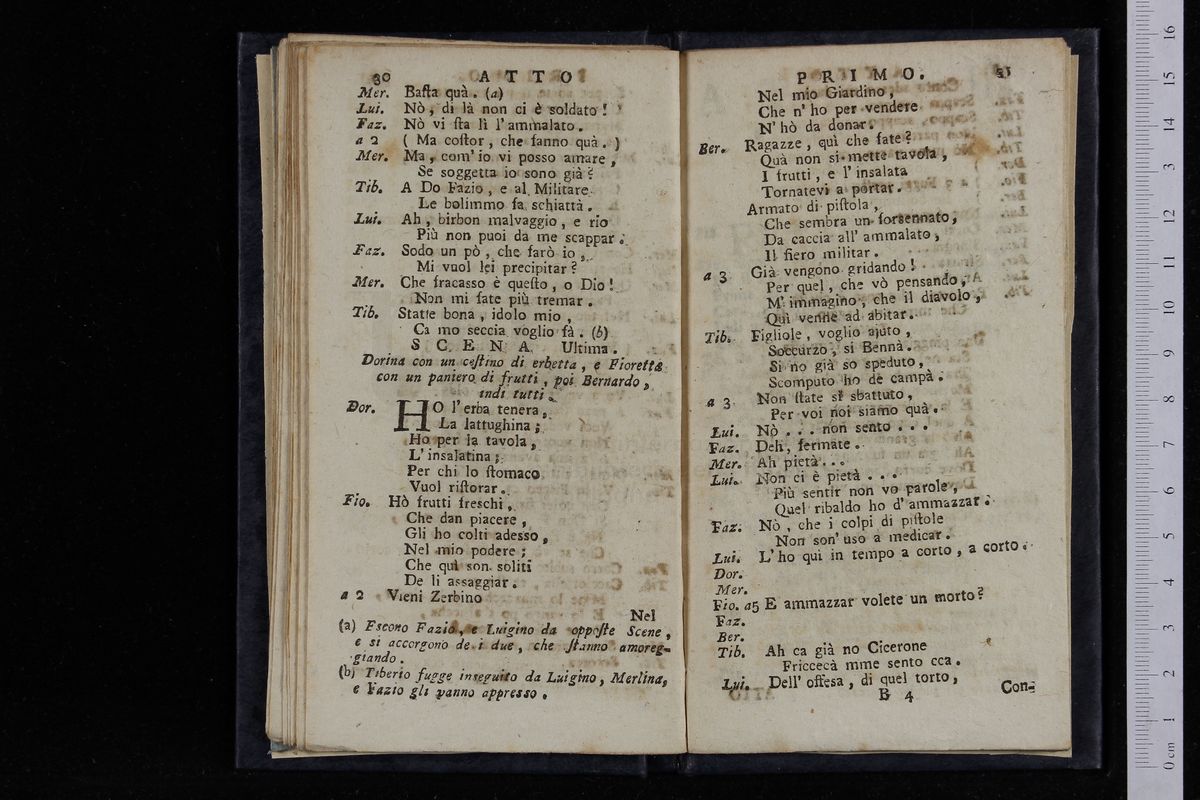 30 ATTO
Mer. Basta quà. (a)
Lui. Nò, di là non ci è soldato!
Faz. Nò vi sta lì l'ammalato.
a 2 (Ma costor, che fanno quà.)
Mer. Ma, com' io vi posso amare,
Se soggetta io sono già?
Tib. A Do Fazio, e al Militare
Le bolimmo fa schiattà.
Lui. Ah, birbon malvaggio, e rio
Più non puoi da me scappar.
Faz. Sodo un pò, che farò io,
Mi vuol lei precipitar?
Mer. Che fracasso è questo, o Dio!
Non mi fate più tremar.
Tib. Statte bona, idolo mio,
Ca mo seccia voglio fà. (b)
SCENA Ultima.
Dorina con un cestino di erbetta, e Fioretta
con un paniero di frutti, poi Bernardo,
indi tutti.
Dor. HO l'erba tenera,
La lattughina;
Ho per la tavola,
L'insalatina;
Per chi lo stomaco
Vuol ristorar.
Fio. Hò frutti freschi,
Che dan piacere,
Gli ho colti adesso,
Nel mio podere;
Che quì son soliti
De li assaggiar.
a 2 Vieni Zerbino
Nel
(a) Escono Fazio, e Luigino da opposte Scene,
e si accorgono de i due, che stanno amoreg-
giando.
(b) Tiberio fugge inseguito da Luigino, Merlina,
e Fazio gli vanno appresso.
PRIMO. 31
Nel mio Giardino,
Che n' ho per vendere
N' hò da donar.
Ber. Ragazze, quì che fate?
Quà non si mette tavola,
I frutti, e l'insalata
Tornatevi a portar.
Armato di pistola,
Che sembra un forsennato,
Da caccia all' ammalato,
Il fiero militar.
a 3 Già vengono gridando!
Per quel, che vò pensando,
M' immagino, che il diavolo,
Quì venne ad abitar.
Tib. Figliole, voglio ajuto,
Soccurzo, si Bennà.
Si no già so speduto,
Scomputo ho de campà.
a 3 Non state sì sbattuto,
Per voi noi siamo quà.
Lui. Nò . . . non sento . . .
Faz. Deh, fermate.
Mer. Ah pietà . . .
Lui. Non ci è pietà . . .
Più sentir non vo parole,
Quel ribaldo ho d'ammazzar.
Faz. Nò, che i colpi di pistole
Non son' uso a medicar.
Lui. L' ho qui in tempo a corto, a corto.
Dor.
Mer.
Fio. a5 E ammazzar volete un morto?
Faz.
Ber.
Tib. Ah ca già no Cicerone
Friccecà mme sento cca.
Lui. Dell' offesa, di quel torto,
B 4 Con-
0 cm 1 2 3 4 5 6 7 8 9 10 11 12 13 14 15 16